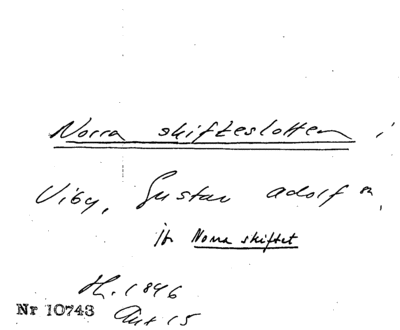 Norra skifteslotten i
Viby, Gustav Adolf sn,
Norra skiftet
H. 1846
Nr 10743 Akt 15